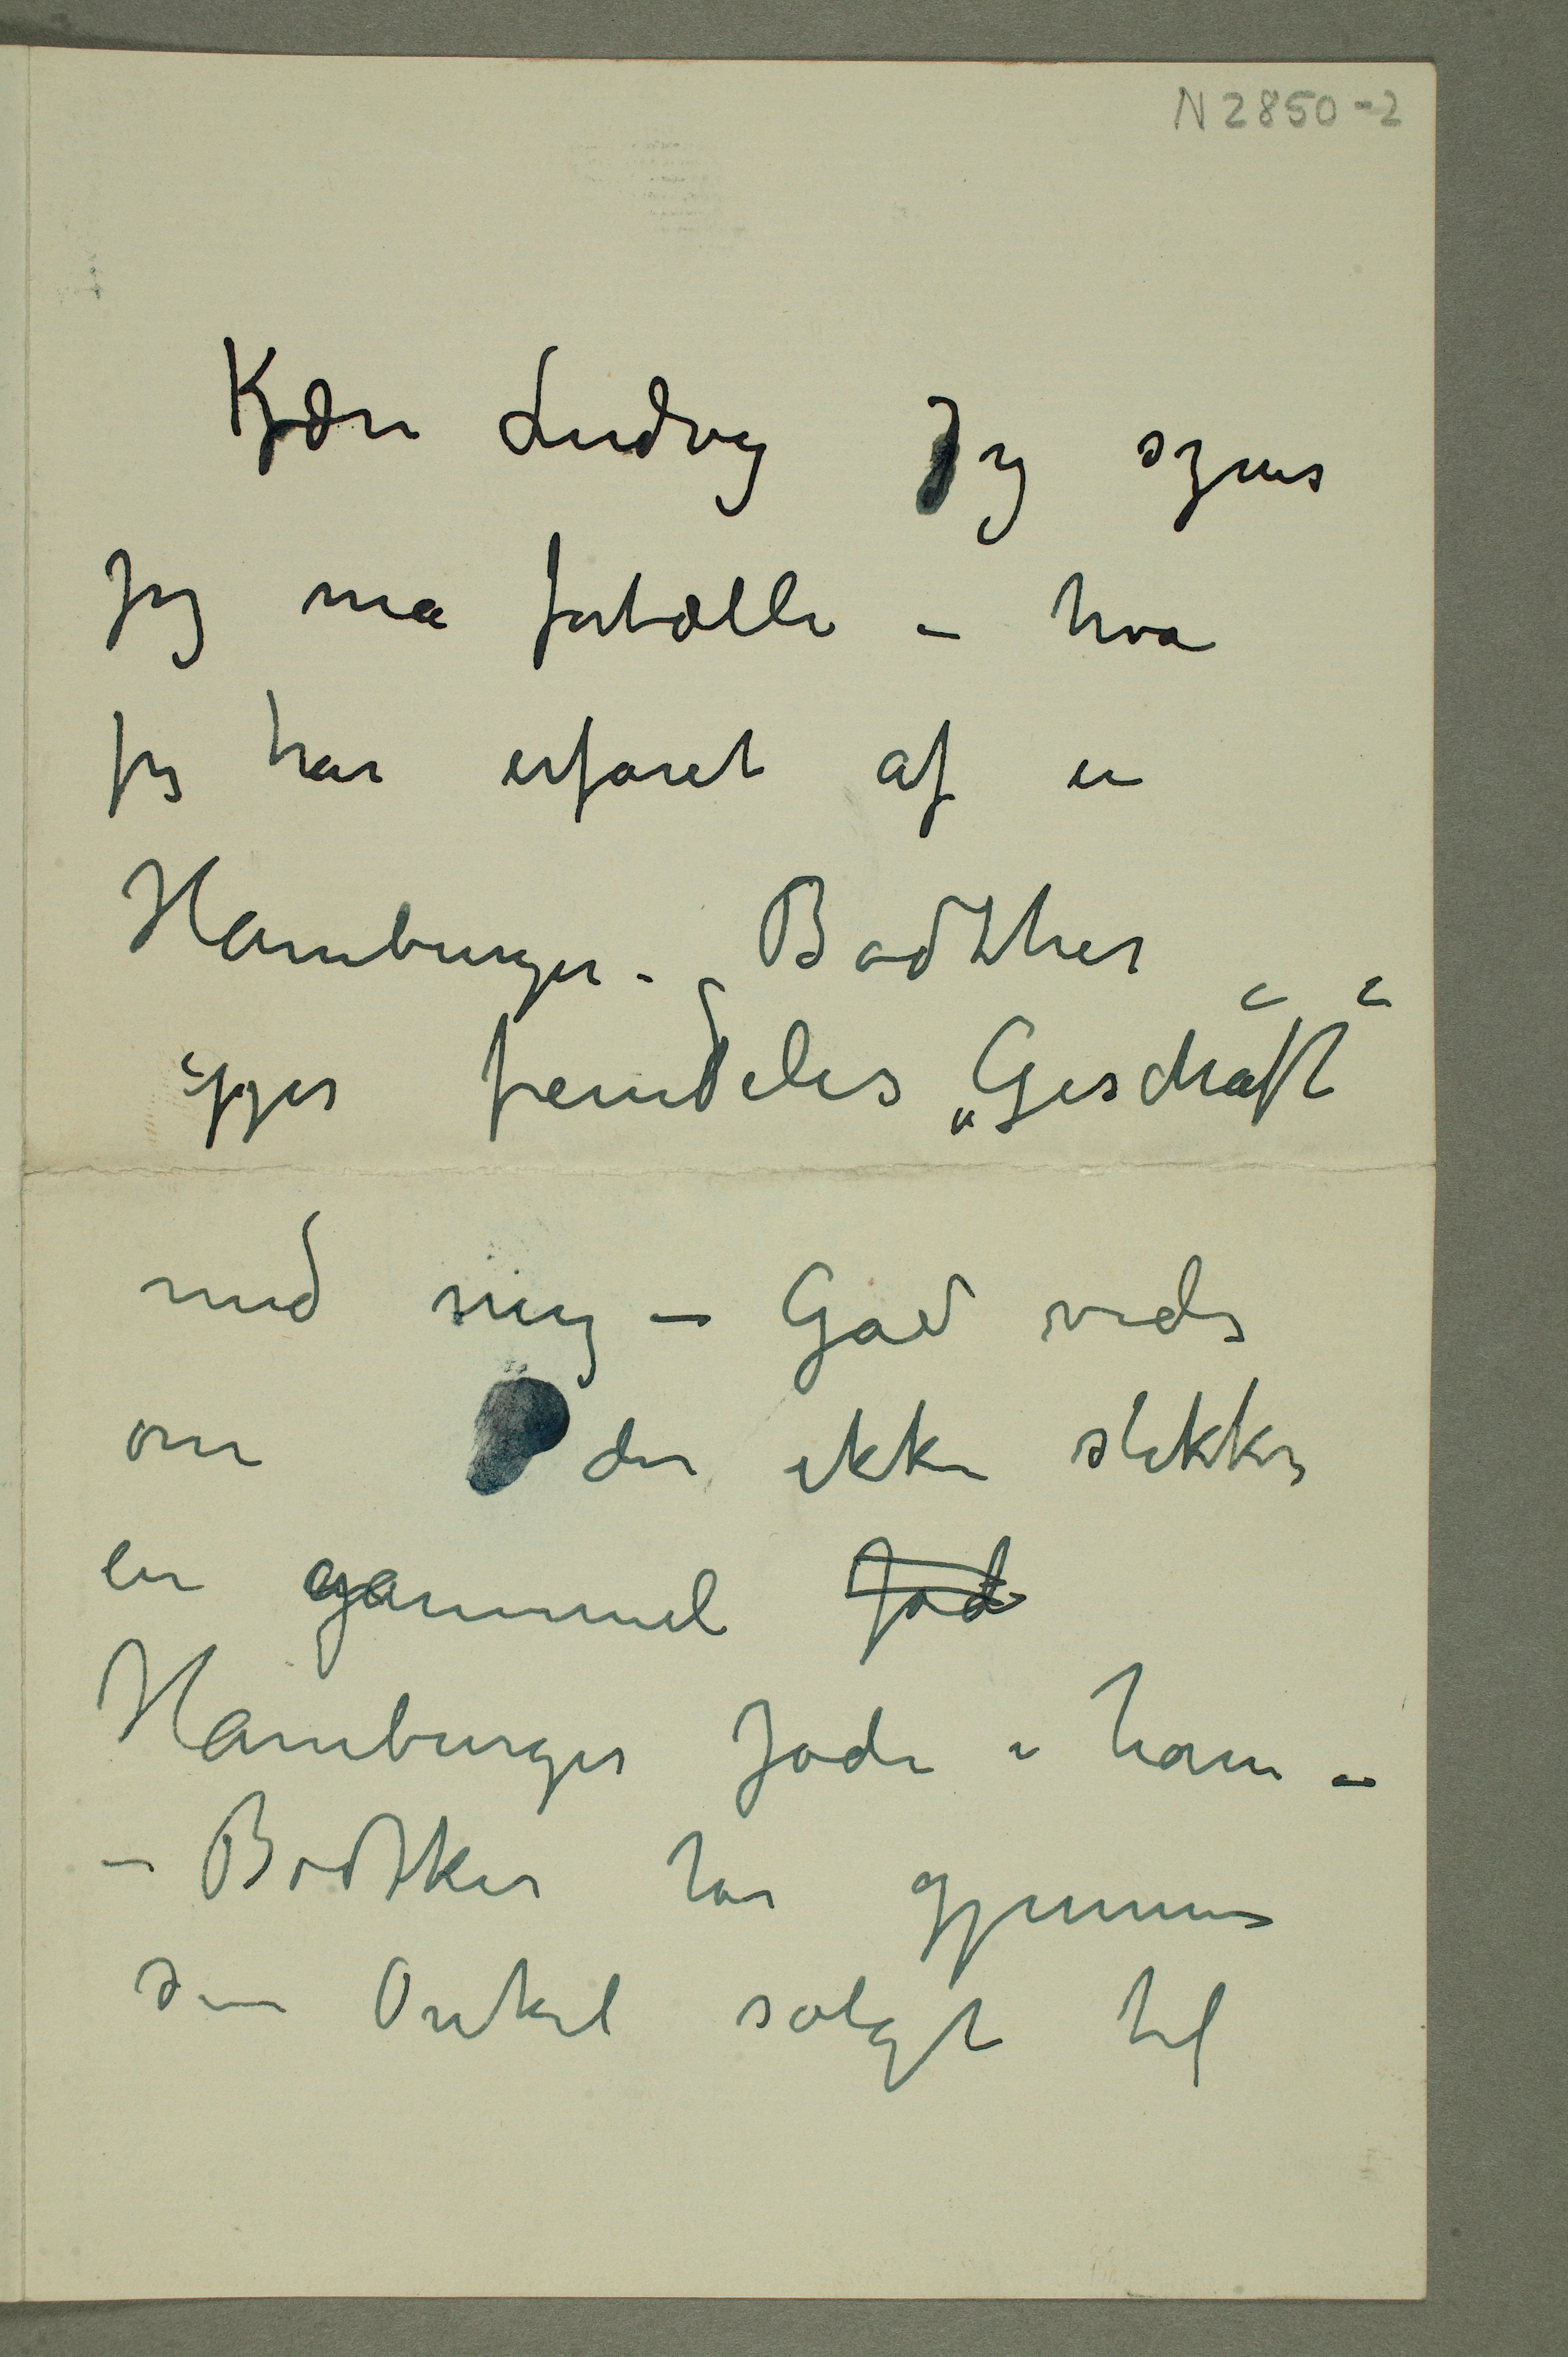 N 2850-2
Kjære Ludvig Jeg synes
jeg må fortælle – hva
jeg har erfaret af en
Hamburger – Bødtker
gjør fremdeles „Geschäft“
med mig – Gad vide
om der ikke stikker
en gammel Jød
Hamburger Jøde i ham –
– Bødtker har gjennem
sin Onkel solgt til